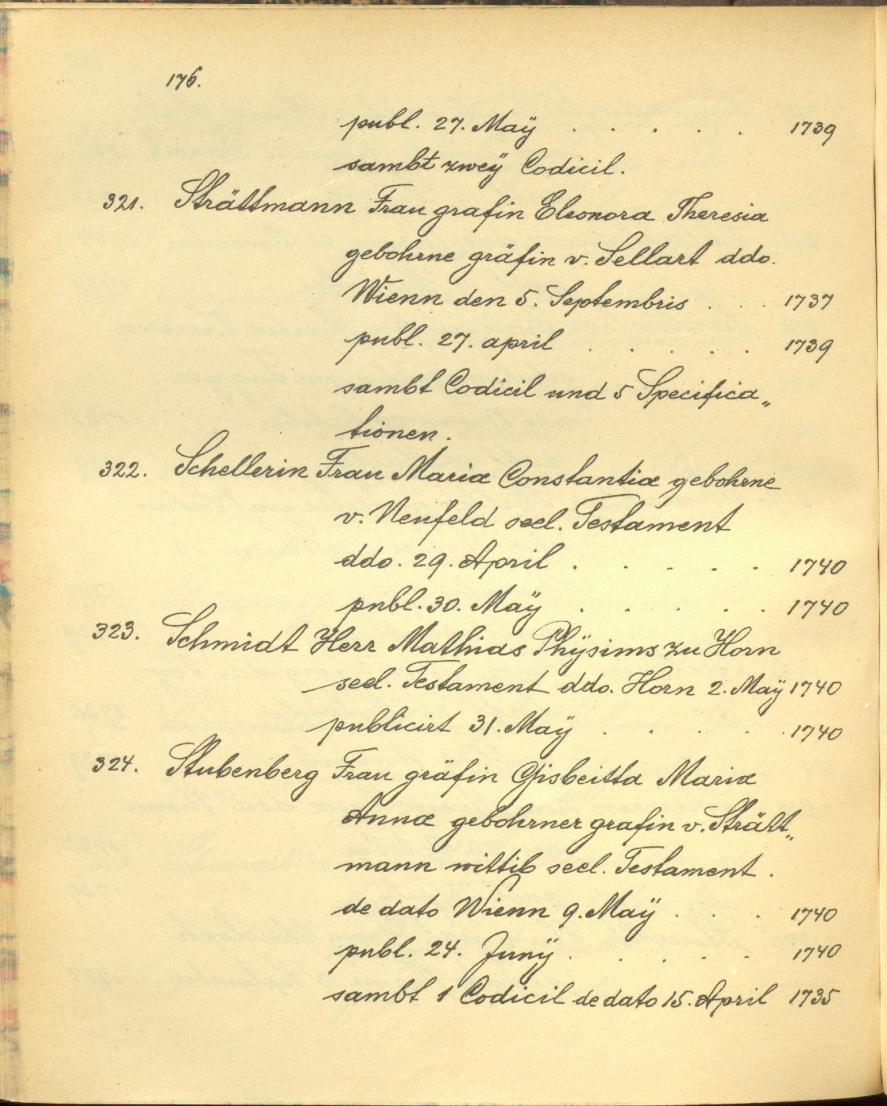 176.
publ. 27. Maÿ . . . . . 1739
sambt zweÿ Codicil.
321. Strättmann Frau grafin Eleonora Theresia
gebohrne gräfin v. Sellart ddo.
Wienn den 5. Septembris . . 1737
publ. 27. april . . . . . 1739
sambt Codicil und 5 Specifica„
tionen.
322. Schellerin Frau Maria Constantia gebohrne
v. Neufeld seel. Testament
ddo. 29. April . . . . . 1740
publ. 30. Maÿ . . . . . 1740
323. Schmidt Herr Mathias Phÿsims zu Horn
seel. Testament ddo. Horn 2. Maÿ 1740
publicirt 31. Maÿ . . . . 1740
324. Stubenberg Frau gräfin Gisbeitta Maria
Anna gebohrner grafin v. Strätt„
mann wittib seel. Testament .
de dato Wienn 9. Maÿ . . . 1740
publ. 24. Junÿ . . . . . 1740
sambt 1 Codicil de dato 15. April 1735